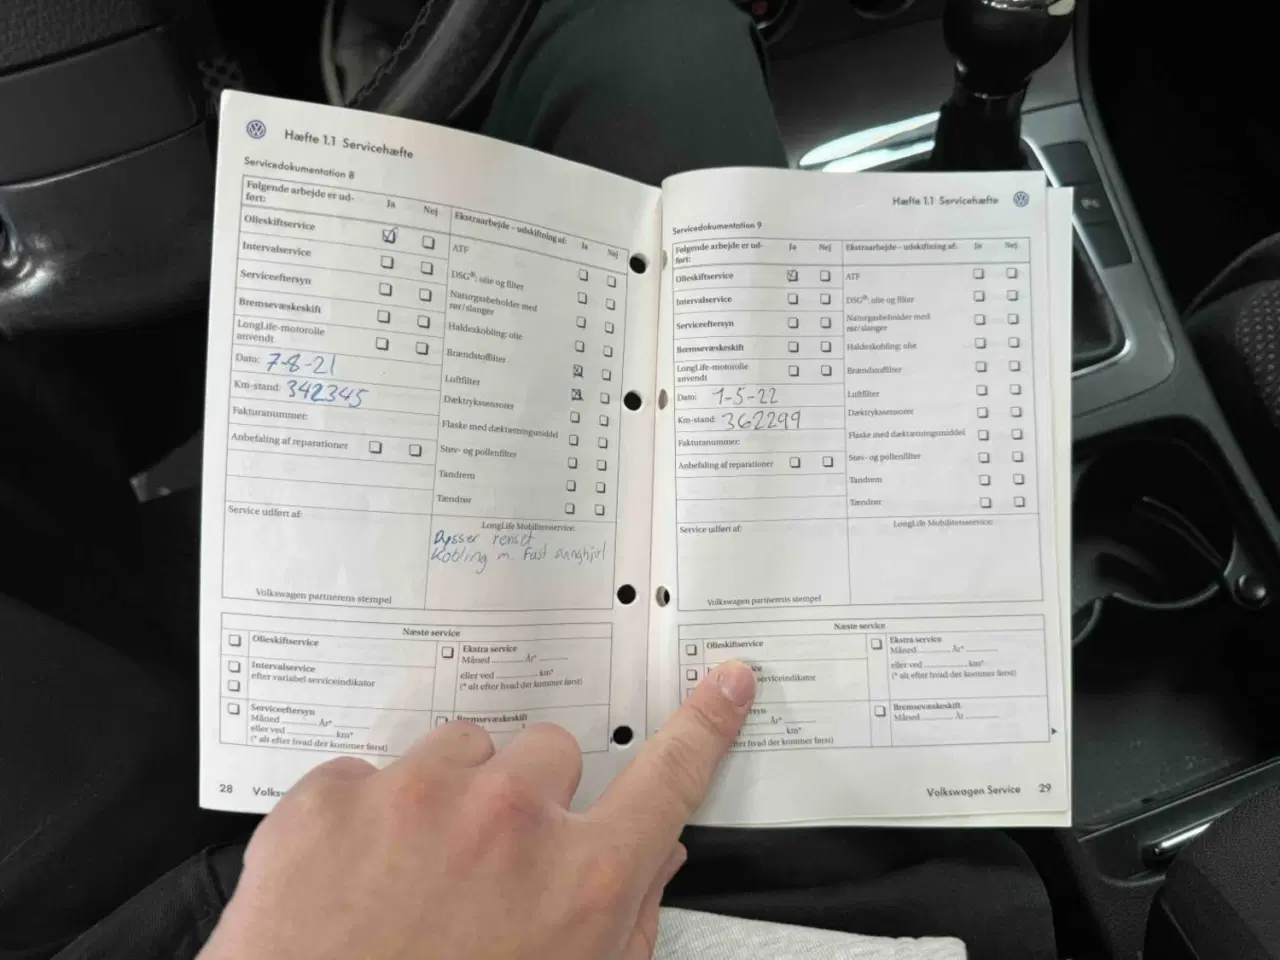 Hæfte 1.1 Servicehæfte
Servicedokumentation 8
Følgende arbejde er ud-
ført:
Ja
Nej
Ekstraarbejde – udskiftning af:
Ja
Nej
Olieskiftservice
Intervalservice
Serviceeftersyn
Bremsevæskeskift
LongLife-motorolie
anvendt
Dato: 7-8-21
Km-stand: 342345
Fakturanummer:
Anbefaling af reparationer
ATF
DSG®: olie og filter
Naturgasbeholder med
rør/slanger
Haldexkobling: olie
Brændstoffilter
Luftfilter
Dæktrykssensorer
Flaske med dæktætningsmiddel
Støv- og pollenfilter
Tandrem
Tændrør
Service udført af:
Volkswagen partnerens stempel
LongLife Mobilitetsservice:
Dysser renset
Kobling m. Fast svinghjul
Næste service
Olieskiftservice
Intervalservice
efter variabel serviceindikator
Serviceeftersyn
Måned ........ År* ........
eller ved ........ km*
(* alt efter hvad der kommer først)
Ekstra service
Måned ........ År* ........
eller ved ........ km*
(* alt efter hvad der kommer først)
Bremsevæskeskift
28
Volks
Hæfte 1.1 Servicehæfte
Servicedokumentation 9
Følgende arbejde er ud-
ført:
Ja
Nej
Ekstraarbejde – udskiftning af:
Ja
Nej
Olieskiftservice
Intervalservice
Serviceeftersyn
Bremsevæskeskift
LongLife-motorolie
anvendt
Dato: 1-5-22
Km-stand: 362299
Fakturanummer:
Anbefaling af reparationer
ATF
DSG®: olie og filter
Naturgasbeholder med
rør/slanger
Haldexkobling: olie
Brændstoffilter
Luftfilter
Dæktrykssensorer
Flaske med dæktætningsmiddel
Støv- og pollenfilter
Tandrem
Tændrør
Service udført af:
Volkswagen partnerens stempel
LongLife Mobilitetsservice:
Næste service
Olieskiftservice
serviceindikator
År* ........
km*
efter hvad der kommer først)
Ekstra service
Måned ........ År* ........
eller ved ........ km*
(* alt efter hvad der kommer først)
Bremsevæskeskift
Måned ........ År ........
Volkswagen Service
29